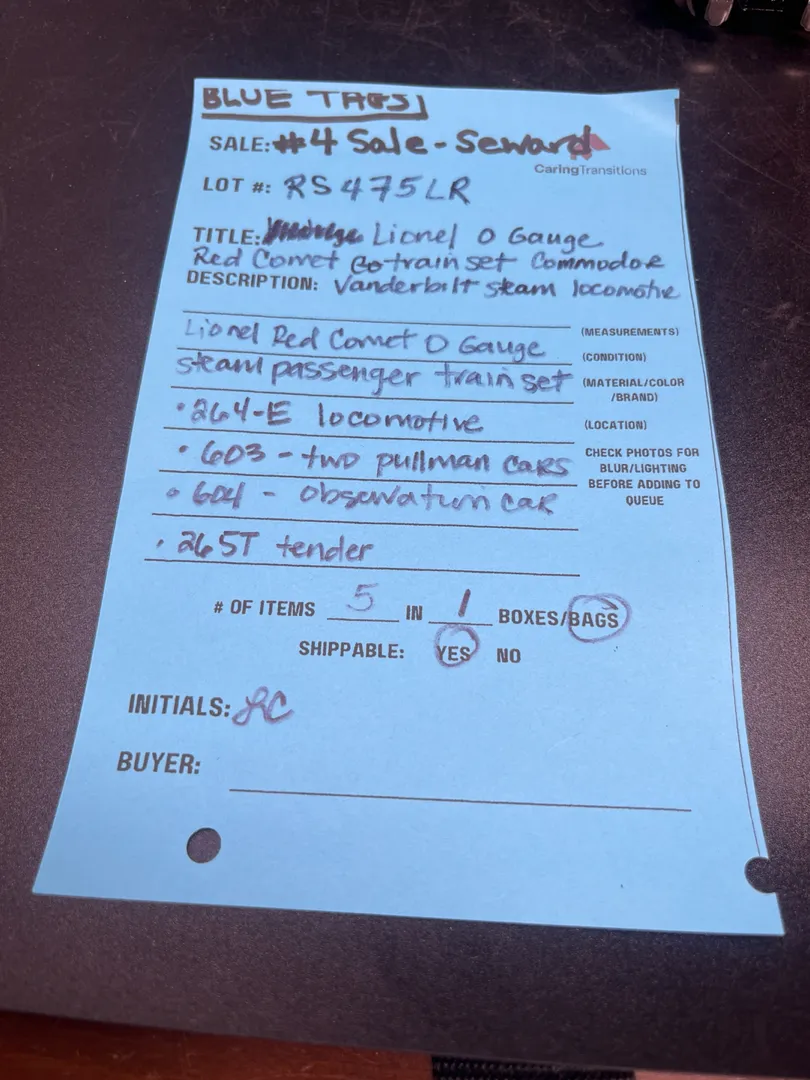 BLUE TAGS!
SALE: #4 Sale - Seward
CaringTransitions
LOT #: RS475LR
TITLE: Lionel O Gauge
Red Comet train set Commodore
DESCRIPTION: Vanderbilt steam locomotive
Lionel Red Comet O Gauge
(MEASUREMENTS)
steam passenger train set
(CONDITION)
(MATERIAL/COLOR
/BRAND)
• 264-E locomotive
(LOCATION)
• 603 - two pullman cars
CHECK PHOTOS FOR
BLUR/LIGHTING
BEFORE ADDING TO
QUEUE
• 604 - observation car
• 265T tender
# OF ITEMS 5 IN 1 BOXES/BAGS
SHIPPABLE: YES NO
INITIALS: LC
BUYER: